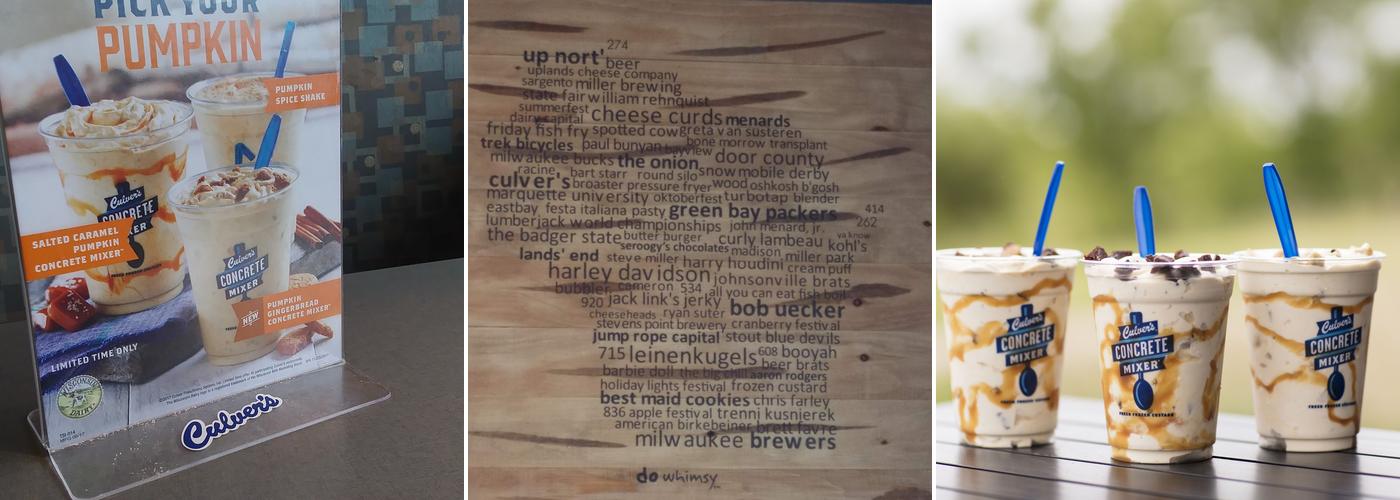 PICK YOUR
PUMPKIN
PUMPKIN
SPICE SHAKE
Culver's
CONCRETE
MIXER
SALTED CARAMEL
PUMPKIN
CONCRETE MIXER
Culver's
CONCRETE
MIXER
NEW
PUMPKIN
GINGERBREAD
CONCRETE MIXER
LIMITED TIME ONLY
WISCONSIN
DAIRY
Culver's
274
up nort' beer
uplands cheese company
sargento miller brewing
state fair william rehnquist
summerfest cheese curds menards
dairy capital
friday fish fry spotted cow greta van susteren
trek bicycles paul bunyan bayview bone morrow transplant
milwaukee bucks the onion door county
racine bart starr round silo snowmobile derby
culver's broaster pressure fryer wood oshkosh b'gosh
marquette university oktoberfest turbotap blender
eastbay festa italiana pasty green bay packers 414
lumberjack world championships john menard, jr. 262
the badger state butter burger curly lambeau kohl's ya know
seroogy's chocolates madison miller park
lands' end steve miller harry houdini cream puff
harley davidson johnsonville brats
bubbler cameron 534 all you can eat fish boil
920 jack link's jerky bob uecker
cheeseheads ryan suter
stevens point brewery cranberry festival
jump rope capital stout blue devils
715 leinenkugels 608 booyah
beer brats
barbie doll the big chill aaron rodgers
holiday lights festival frozen custard
best maid cookies chris farley
836 apple festival trenni kusnierek
american birkebeiner brett favre
milwaukee brewers
do whimsy
Culver's
CONCRETE
MIXER
FRESH FROZEN CUSTARD
Culver's
CONCRETE
MIXER
FRESH FROZEN CUSTARD
Culver's
CONCRETE
MIXER
FRESH FROZEN CUSTARD